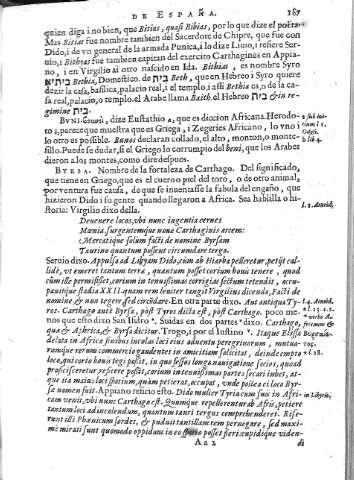 DE ESPAÑA. 187
quien diga i no bien, que Bitias, quasi Bibias, por lo que dize el poeta.
Mas Bitias fue nombre tambien del Sacerdote de Chipre, que fue con
Dido, i de vn general de la armada Punica, i lo dize Liuio, i refiere Ser-
uio, i Bithyas fue tambien capitan del exercito Carthagines en Appia-
no, i en Virgilio ai otro nascido en Ida. Bithias, es nombre Syro
Domestico, de Beth, que en Hebreo i Syro quiere
dezir la casa, basilica, palacio real, i el templo, i assi Bethia es, o de la ca-
sa real, palacio, o templo. el Arabe llama Baith. el Hebreo בית & in re-
gimine בית.
dize Eusthathio a, que es diccion Africana. Herodo-
to z, parece que muestra que es Griega, i Zegeries Africano, lo vno i
lo otro es possible. Bunos declaran collado, el alto, monton, o monte-
sillo. Puede se dudar, si el Griego lo corrumpio del beni, que los Arabes
dieron a los montes, como dire despues.
BYRSA. Nombre de la fortaleza de Carthago. Del significado,
que tiene en Griego, que es el cuero o piel del toro, o de otro animal,
por ventura fue causa, de que se inuentasse la fabula del engaño, que
hizieron Dido i su gente quando llegaron a Africa. Sea hablilla o hi-
storia: Virgilio dixo della.
1. Aeneid.
Deuenere locos, vbi nunc ingentia cernes
Mœnia, surgentemque nouæ Carthaginis arcem:
Mercatique solum facti de nomine Byrsam
Taurino quantum possent circundare tergo.
Seruio dixo. Appulsa ad Libyam Dido, cum ab Hiarba pelleretur, petijt cal-
lidè, vt emeret tantum terræ, quantum posset corium bouis tenere, quod
cùm ille permisisset, corium in tenuissimas corrigias sectum tetendit, occu-
pauitque stadia XXII. quam rem leniter tangit Virgilius dicendo, Facti de
nomine & non tegere, sed circũdare. En otra parte dixo. Ant antiqua Ty-
ros. Carthago antè Byrsa, pòst Tyros dicta est, pòst Carthago. poco me-
nos que esto dixo San Isidro. Suidas en dos partes dixo. Carthago,
qua & Aphrica, & Byrsa dicitur. Trogo, i por el Iustino. Itaque Elissa
delata in Africæ sinum incolas loci eius aduentu peregrinorum, mutua-
rumque rerum commercio gaudentes in amicitiam solicitat, deinde empto
loco, qui corio bouis tegi posset, in quo fessos longa nauigatione socios, quoad
proficisceretur reficere posset, corium in tenuissimas partes secari iubet, at-
que ita maius loci spatium, quàm petierat, occupat, vnde postea ei loco Byr-
sæ nomen fuit. Appiano refirio esto. Dido mulier Tyria cum suis in Afri-
cam venit, vbi nunc Carthago est. Quumque repellerentur ab Afris, petiere
tantum loci ad incolendum, quantum tauri tergus comprehenderet. Rise-
runt illi Phœnicum sordes, & puduit tantillam rem pernegare, sed maxi-
mè mirati sunt quomodo oppidum in eo spatio posset fieri: cupidique viden-
Aa 2 di